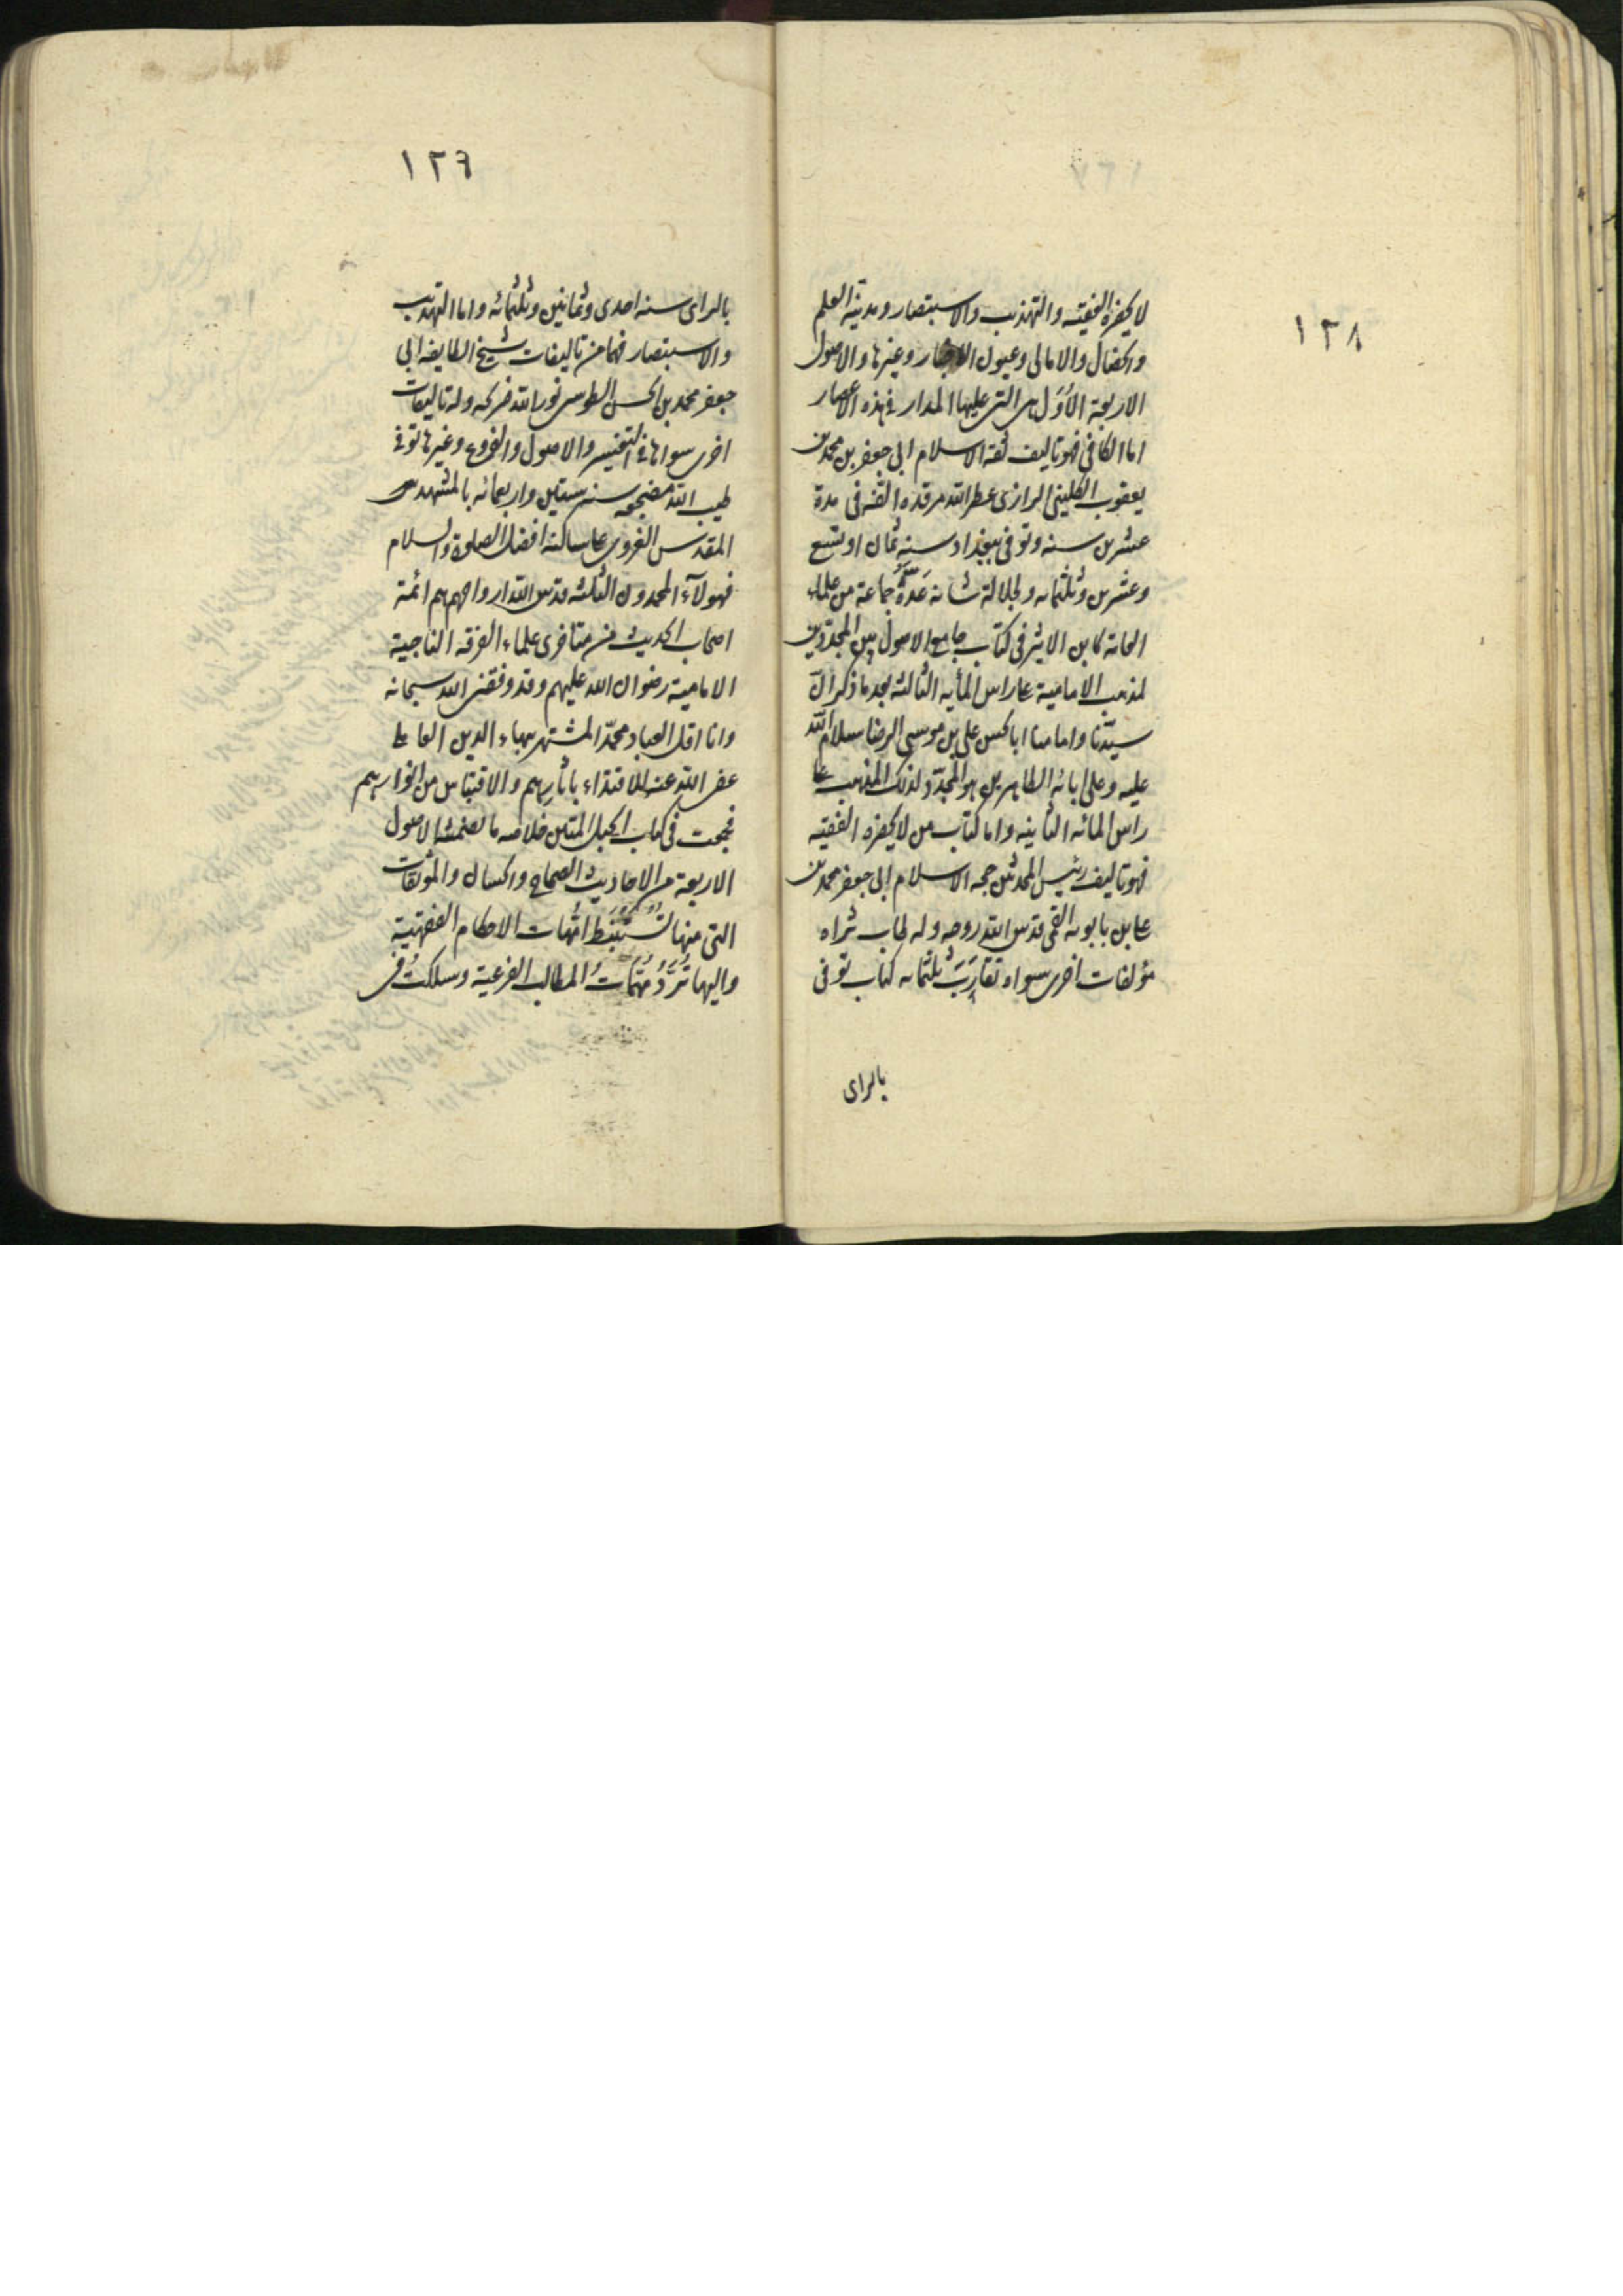 ١٢٨
لا يحضره الفقيه والتهذيب والاستبصار ومدينة العلم
والخصال والامالى وعيون الاخبار وغيرها والاصول
الاربعة الاُوَل هى التى عليها المدار فى هذه الاعصار
اما الكافى فهو تاليف ثقه الاسلام ابى جعفر بن محمد بن
يعقوب الكلينى الرازى عطر الله مرقده الّفه فى مدة
عشرين سنه وتوفى ببغداد سنه ثمان او تسع
وعشرين وثلثمائه ولجلالة شانه عَدَّهُ جماعة من علماء
العامه كابن الاثير فى كتاب جامع الاصول من المجددين
لمذهب الامامية على راس المأيه الثالثه بعد ما ذكر انّ
سيّدنا وامامنا ابا الحسن على بن موسى الرضا سلام الله
عليه وعلى ابائه الطاهرين هو المجدّد لذلك المذهب على
راس المائه الثانيه واما كتاب من لا يحضره الفقيه
فهو تاليف رئيس المحدثين حجه الاسلام ابى جعفر محمد بن
على بن بابويه القمى قدس الله روحه وله طاب ثراه
مؤلفات اخرى سواه تقارب ثلثمائه كتاب توفى
بالراى
١٢٩
بالراى سنه احدى وثمانين وثلثمائه واما التهذيب
والاستبصار فهما من تاليفات شيخ الطايفه ابى
جعفر محمد بن الحسن الطوسى نور الله ضريحه وله تاليفات
اخرى سواها فى التفسير والاصول والفروع وغيرها توفى
طيب الله مضجعه سنه ستين واربعمائه بالمشهد
المقدس الغروى على ساكنه افضل الصلوة والسلام
فهولآء المحمدون الثلثه قدس الله ارواحهم هم ائمة
اصحاب الحديث من متاخرى علماء الفرقه الناجية
الامامية رضوان الله عليهم وقد وفقنى الله سبحانه
وانا اقل العباد محمّد المشتهر ببهاء الدين العاملى
عفى الله عنه للاقتداء بآثارهم والاقتباس من انوارهم
فجمعت فى كتاب الحبل المتين خلاصه ما تضمنته الاصول
الاربعة من الاحاديث الصحاح والحسان والموثقات
التى منها تُسْتَنْبَط امّهات الاحكام الفقهية
واليها تُرَدُّ مُهِمّاتُ المطالب الفرعية وسلكتُ فى